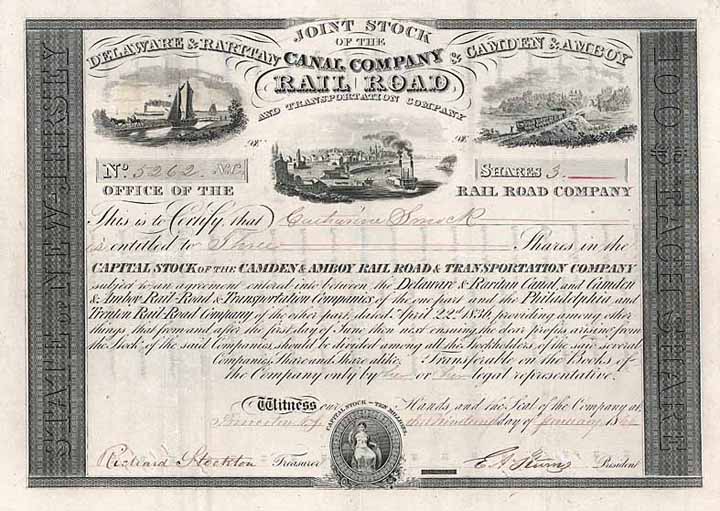 JOINT STOCK
OF THE
DELAWARE & RARITAN CANAL COMPANY & CAMDEN & AMBOY
RAIL ROAD
AND TRANSPORTATION COMPANY
No. 5262.
SHARES 3.
OFFICE OF THE RAIL ROAD COMPANY
This is to Certify, that Catharine Smock
is entitled to Three Shares in the
CAPITAL STOCK OF THE CAMDEN & AMBOY RAIL ROAD & TRANSPORTATION COMPANY
subject to an agreement entered into between the Delaware & Raritan Canal, and Camden
& Amboy Rail-Road & Transportation Companies of the one part and the Philadelphia and
Trenton Rail-Road Company of the other part, dated April 22d 1836, providing among other
things, that from and after the first day of June then next ensuing the clear profits arising from
the Stock of the said Companies, should be divided among all the Stockholders of the said several
Companies, Share and Share alike. Transferable on the Books of
the Company only by her or her legal representative.
Witness our Hands, and the Seal of the Company at
Princeton N.J. day of January 18
CAPITAL STOCK TEN MILLIONS
Richard Stockton Treasurer President
STATE OF NEW JERSEY
100 $ EACH SHARE